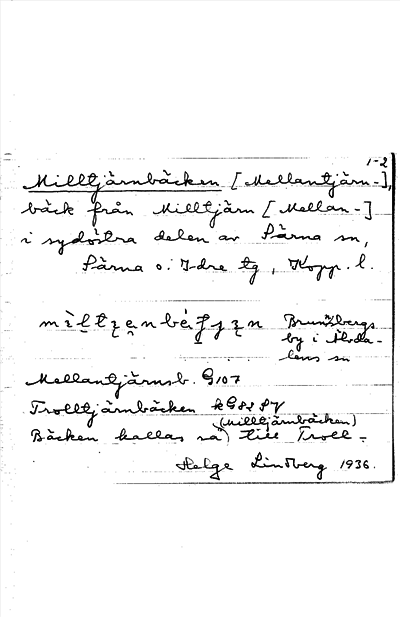 1-2
Milltjärnbäcken [Mellantjärn-],
bäck från Milltjärn [Mellan-]
i sydöstra delen av Särna sn,
Särna o. Idre tg, Kopp. l.
Brunnbergs
by i Älvda-
lens sn
Mellantjärnsb. G107
Trolltjärnbäcken kG82 SV
(Milltjärnbäcken)
Bäcken kallas så till Troll-
Helge Lindberg 1936.